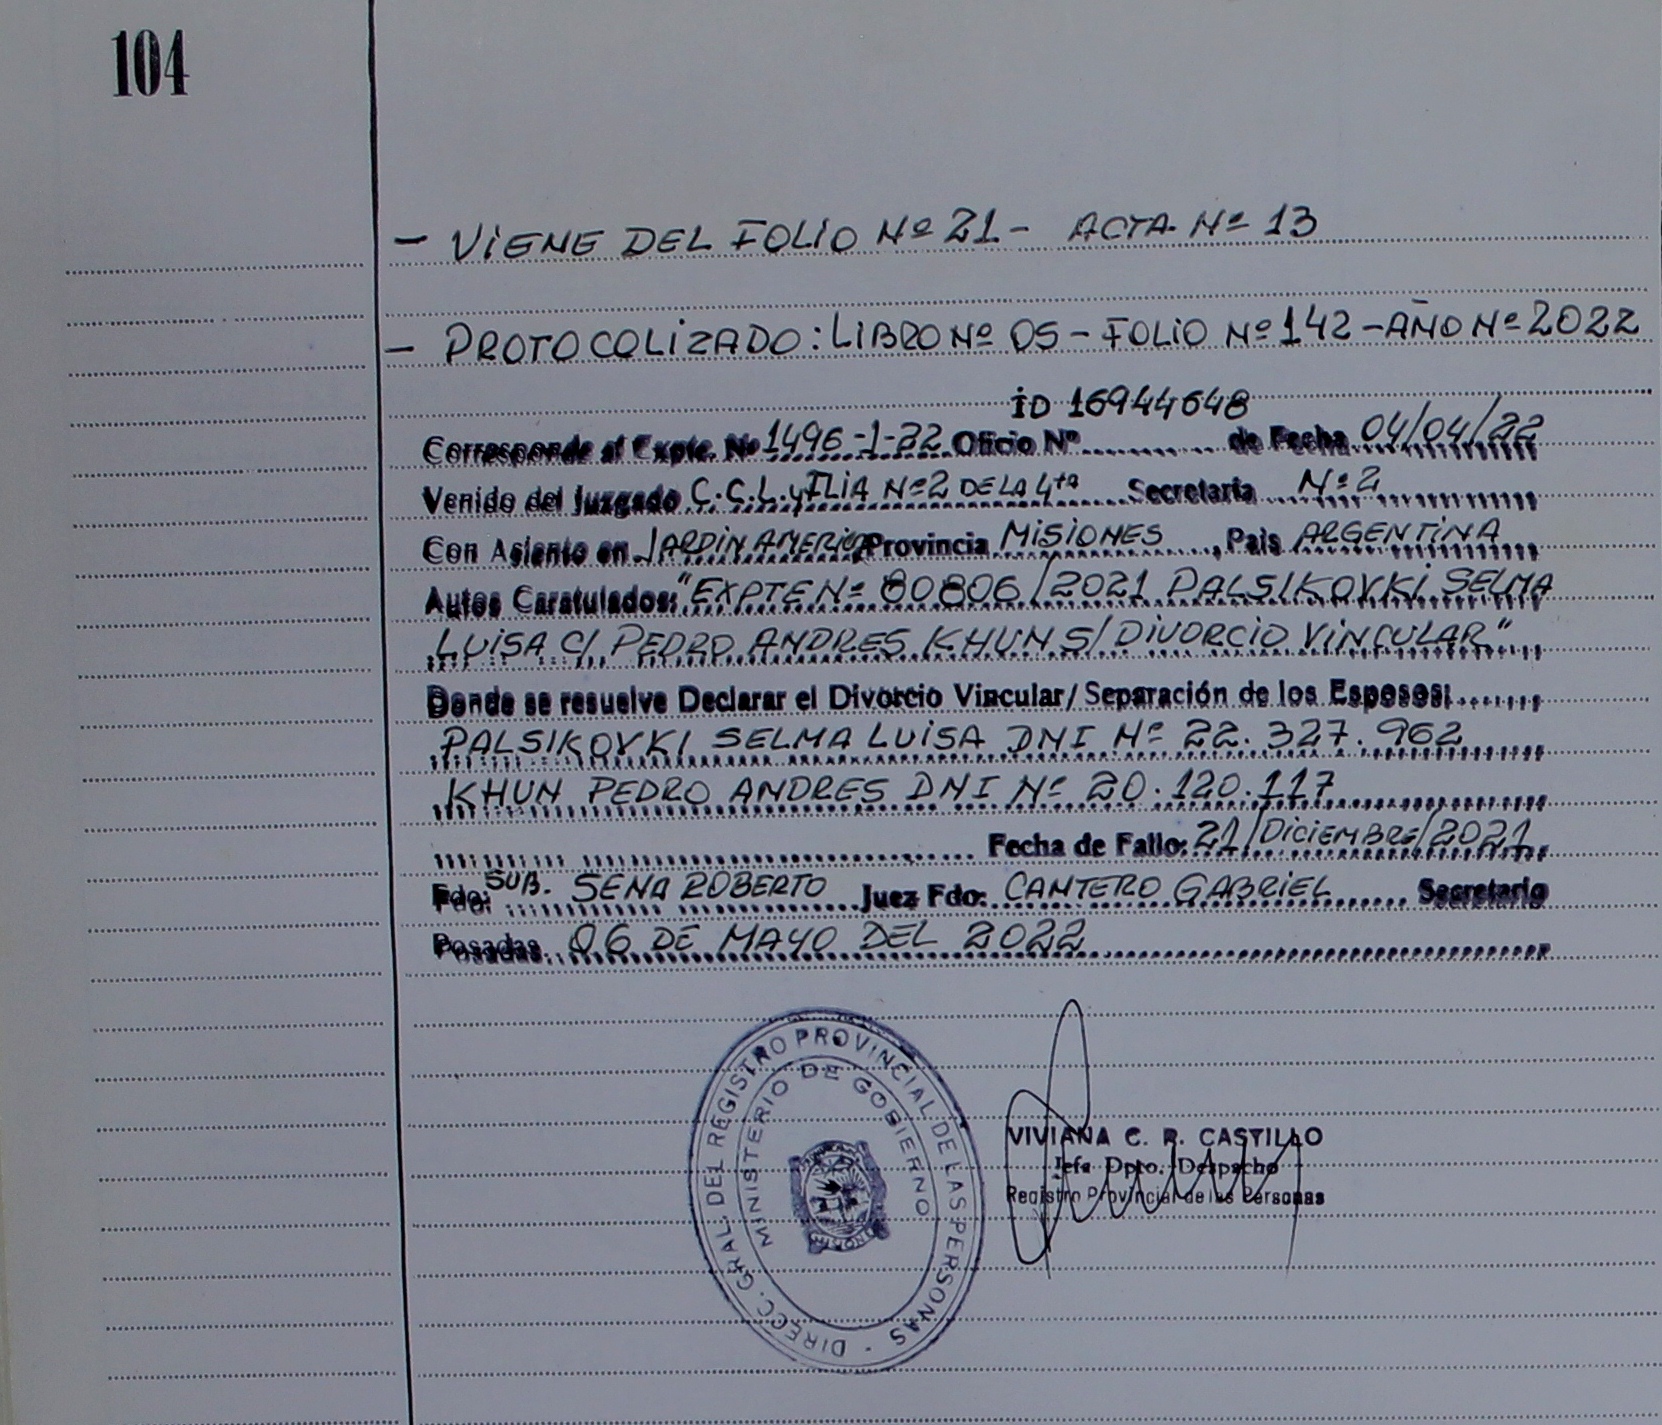 104
- VIENE DEL FOLIO Nº 21 - ACTA Nº 13
- PROTOCOLIZADO: LIBRO Nº 05 - FOLIO Nº 142 - AÑO Nº 2022
ID 16944648
Corresponde al Expte. Nº 1496-1-22 Oficio Nº ........ de Fecha 04/04/22
Venido del Juzgado C.C.L. y FLIA Nº 2 DE LA 4ta Secretaria Nº 2
Con Asiento en JARDIN AMERICA Provincia MISIONES, Pais ARGENTINA
Autos Caratulados: "EXPTE Nº 80806/2021 PALSIKOVKI SELMA
LUISA C/ PEDRO ANDRES KHUN S/ DIVORCIO VINCULAR"
Donde se resuelve Declarar el Divorcio Vincular/Separación de los Esposos:
PALSIKOVKI SELMA LUISA DNI Nº 22.327.962
KHUN PEDRO ANDRES DNI Nº 20.120.117
Fecha de Fallo: 21/DICIEMBRE/2021
Fdo: SUB. SENA ROBERTO Juez Fdo: CANTERO GABRIEL Secretario
Posadas, 06 DE MAYO DEL 2022
DIRECC. GRAL. DEL REGISTRO PROVINCIAL DE LAS PERSONAS -
MINISTERIO DE GOBIERNO
VIVIANA C. R. CASTILLO
Jefa Dpto. Despacho
Registro Provincial de las Personas